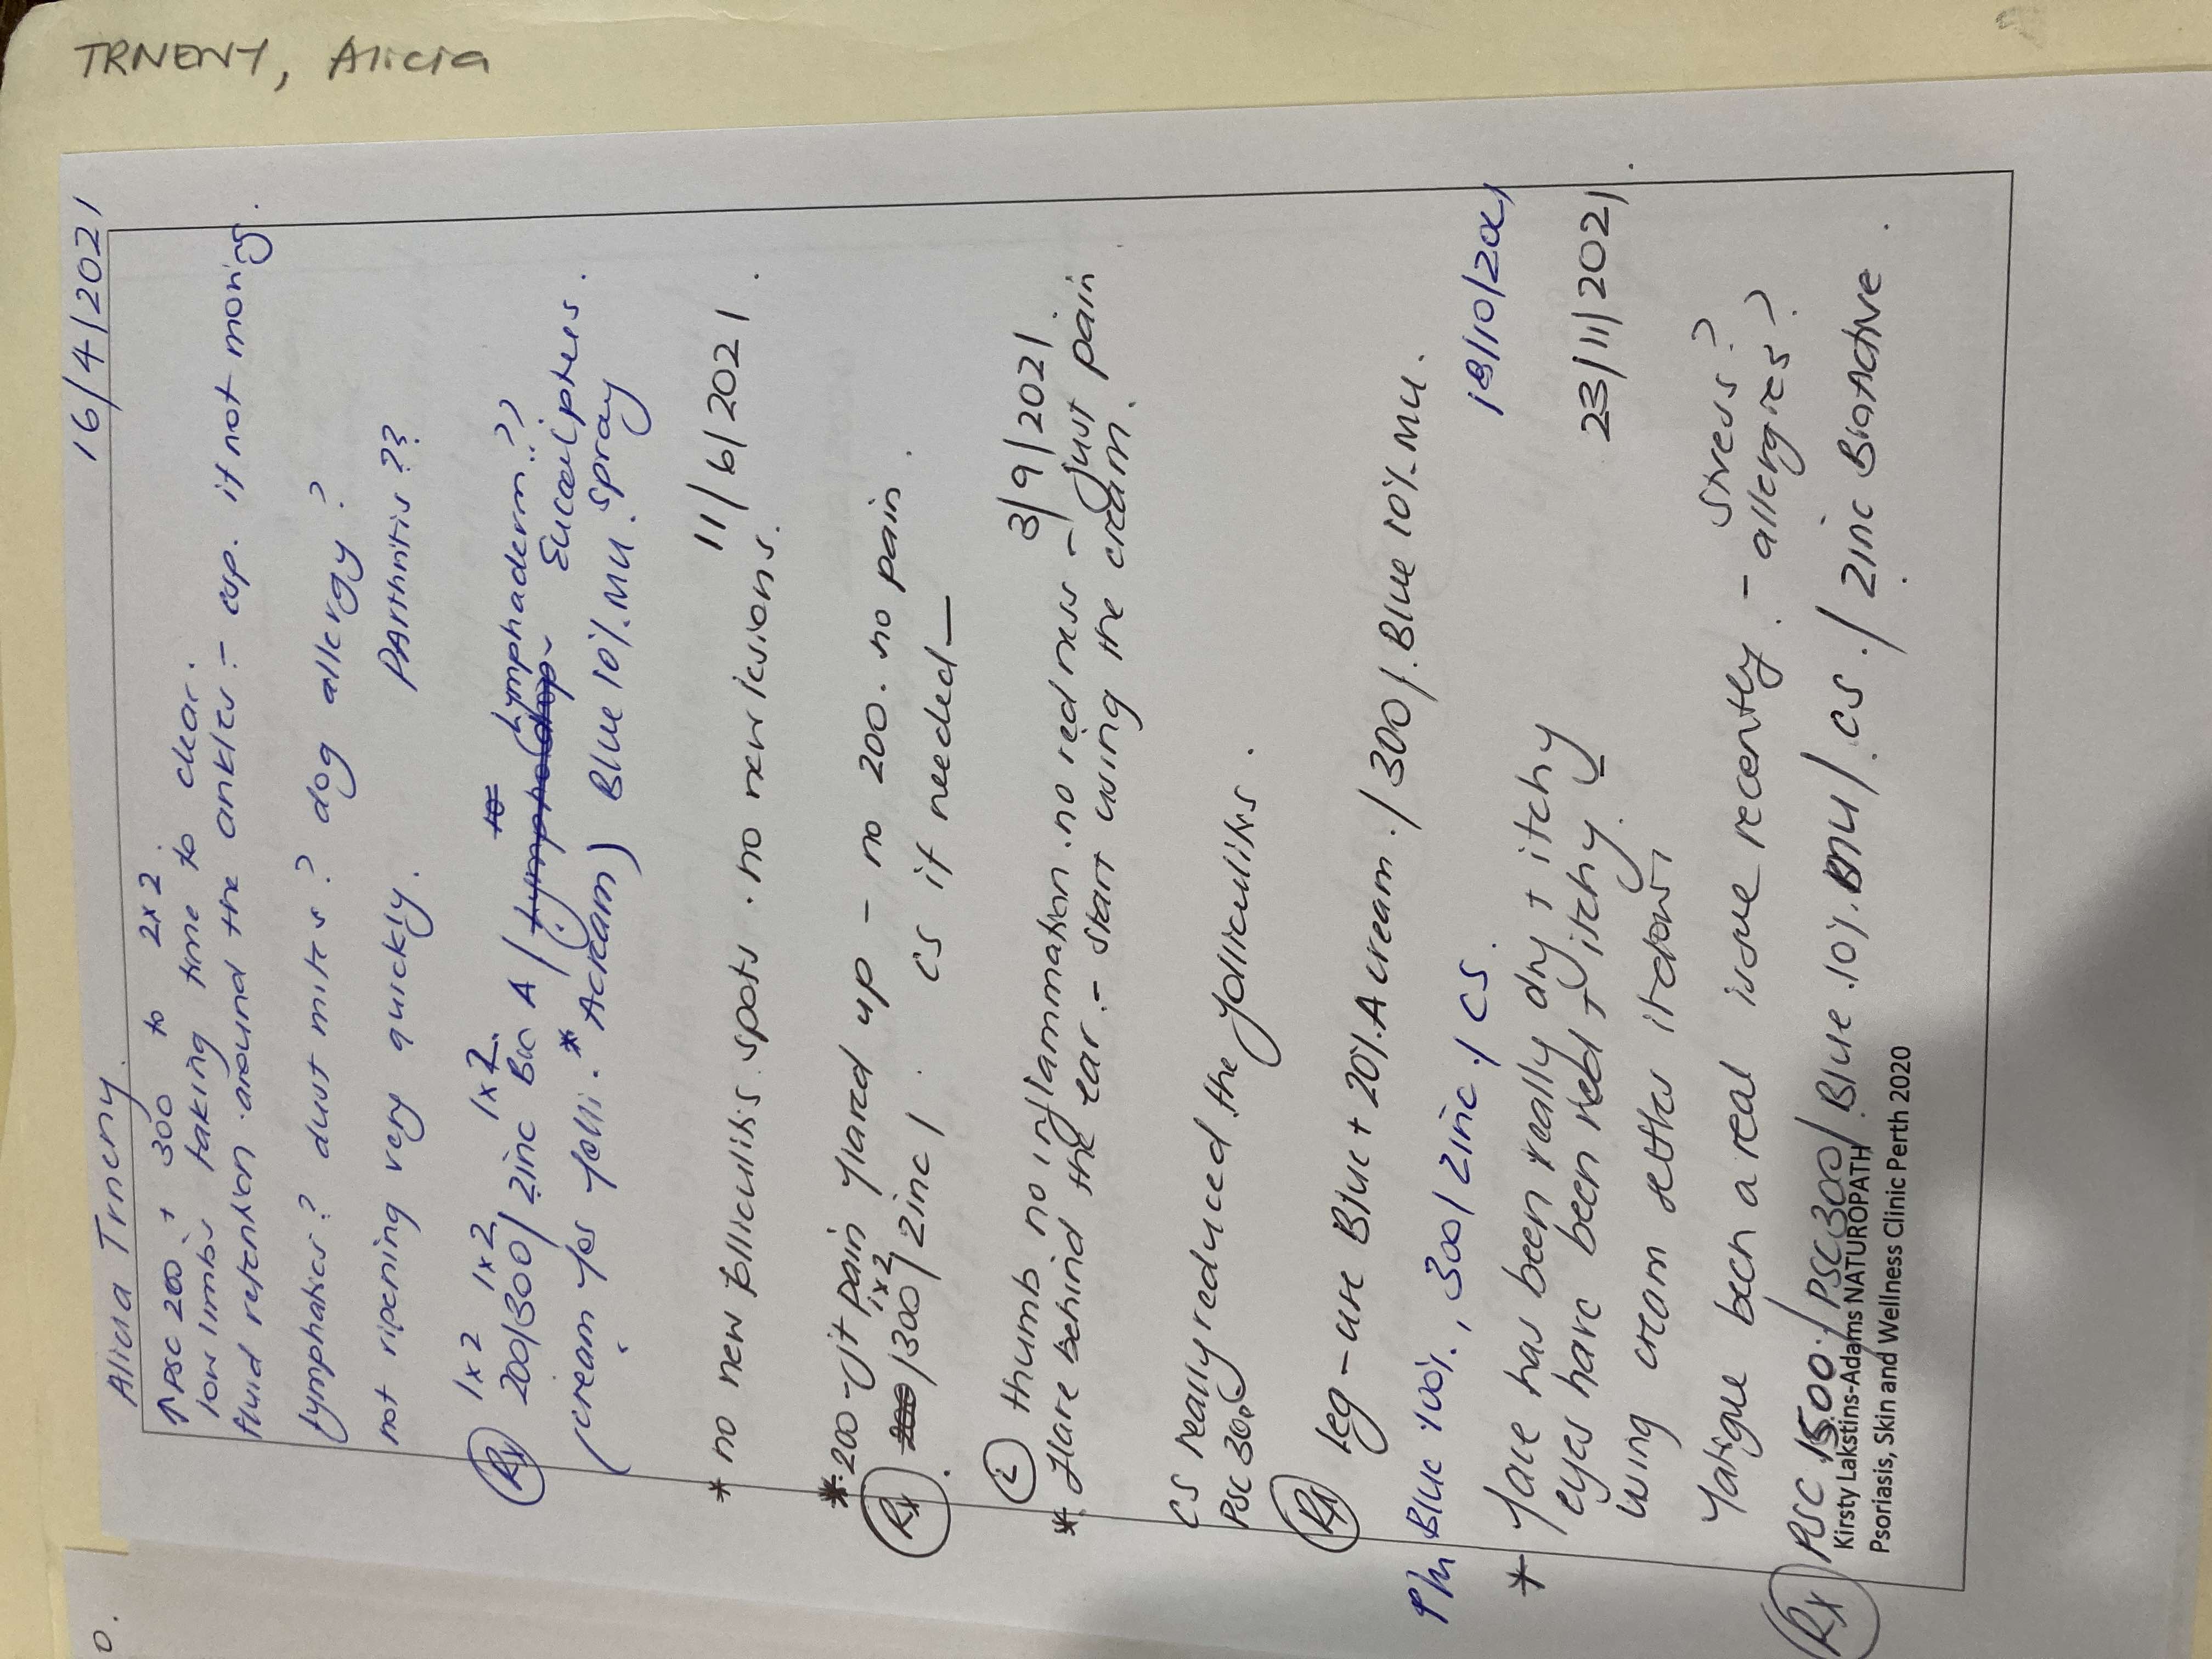 TRNENY, Alicia
Alicia Trneny. 16/4/2021
↑ PSC 200 + 300 to 2x2
low limbs taking time to clear.
fluid retention around the ankles - esp. if not moving.
lymphatics? dust mites? dog allergy?
not ripening very quickly. PArthritis??
1x2 1x2 1x2
Rx 200/300/Zinc Bio A / Lymphaderm??
(cream for folli. * A cream) Eucaliptus.
Blue 10% MU. spray
11/6/2021.
* no new folliculitis spots. no new lesions.
* 200 - jt pain flared up - no 200. no pain.
1x2
Rx /300/Zinc/. CS if needed
3/9/2021.
L thumb no inflammation. no redness - just pain
* flare behind the ear. - start using the cream.
CS really reduced the folliculitis.
PSC 300
Rx Leg - use Blue + 20% A cream./300/.Blue 10% MU.
Ph Blue 100%., 300/Zinc./CS. 18/10/2021
23/11/2021.
* face has been really dry + itchy
eyes have been red + itchy
using cream settles it down
fatigue been a real issue recently. - stress?
allergies?
Rx PSC 1500./PSC300/Blue.10%.BMU/.CS./Zinc BioActive.
Kirsty Lakstins-Adams NATUROPATH
Psoriasis, Skin and Wellness Clinic Perth 2020